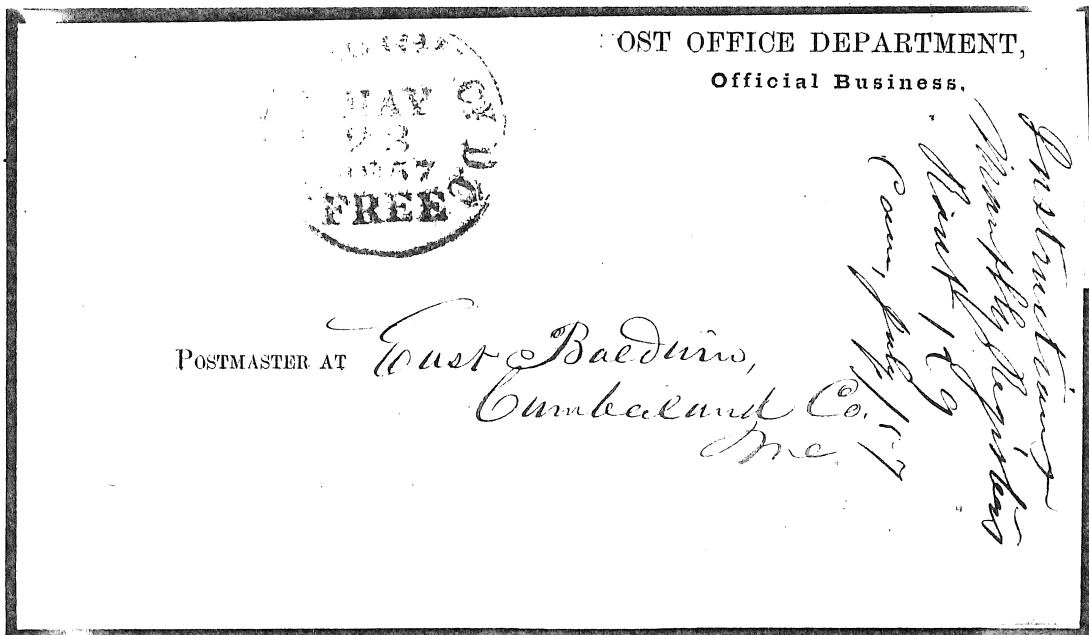 OST OFFICE DEPARTMENT,
Official Business.
MAY
23
1857
FREE
POSTMASTER AT East Baldwin,
Cumberland Co.
Me.
Instructions
Monthly Registers
Com, July 1/57